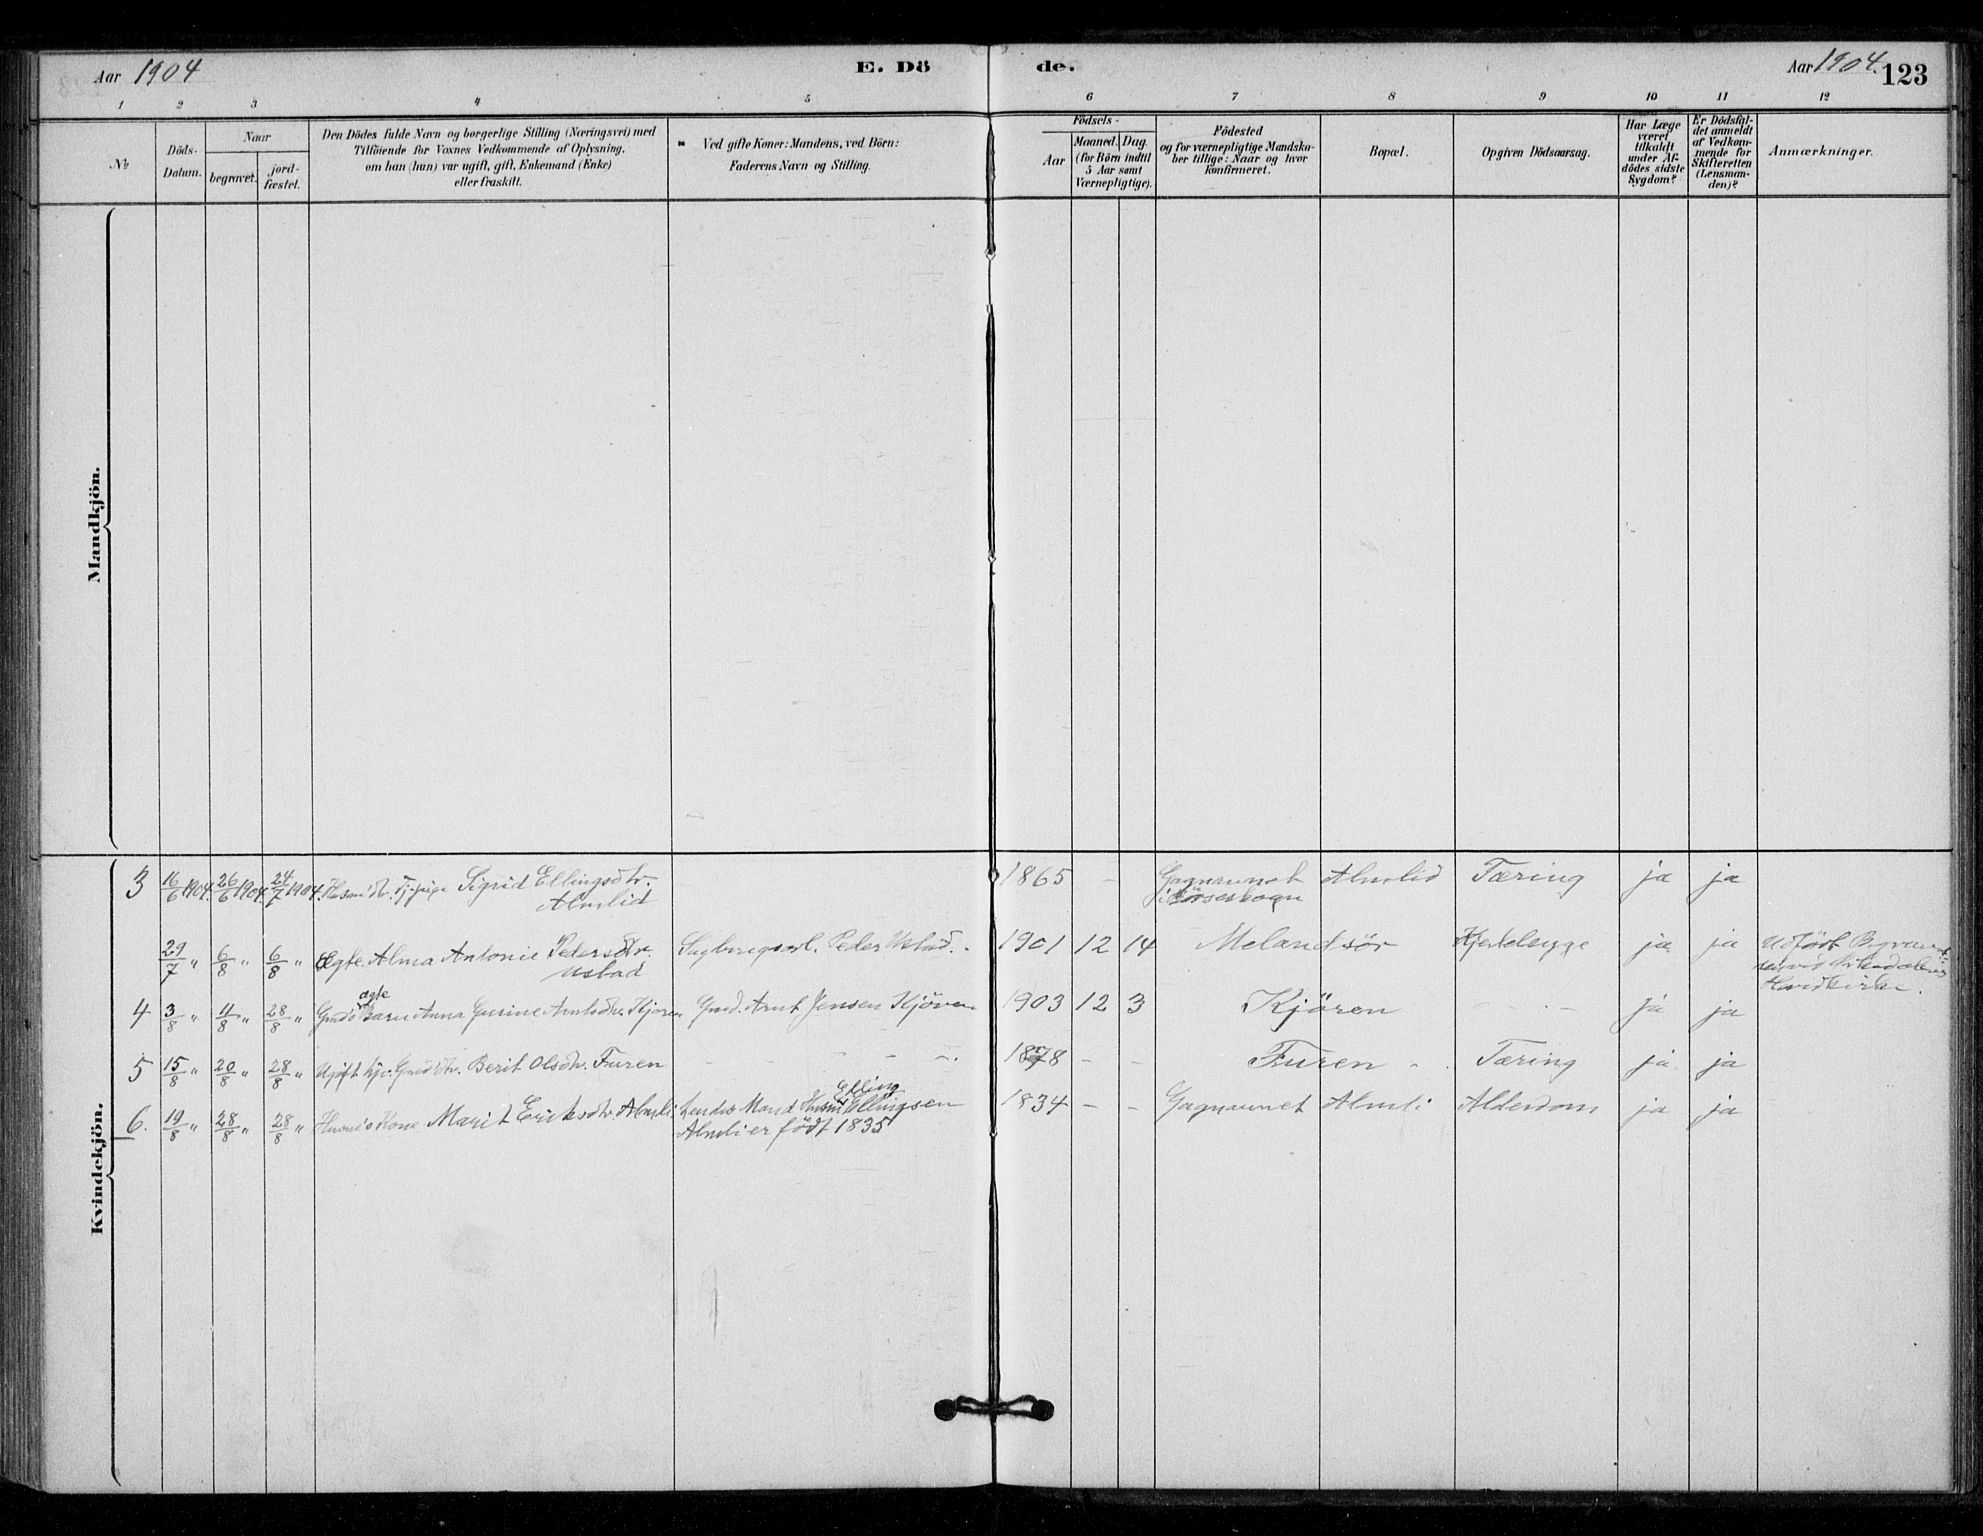 Aar 1904
E. Dö
de.
Aar 1904.
123
1 2 3 4 5 6 7 8 9 10 11 12
No
Döds-
Datum.
Naar
begravet.
jord-
fæstet.
Den Dödes fulde Navn og borgerlige Stilling (Næringsvei) med
Tilföiende for Voxnes Vedkommende af Oplysning,
om han (hun) var ugift, gift, Enkemand (Enke)
eller fraskilt.
Ved gifte Koner: Mandens, ved Börn:
Faderens Navn og Stilling.
Födsels-
Aar
Maaned.
Dag.
(for Börn indtil
5 Aar samt
Værnepligtige).
Födested
og for værnepligtige Mandska-
ber tillige: Naar og hvor
konfirmeret.
Bopæl.
Opgiven Dödsaarsag.
Har Læge
været
tilkaldt
under Af-
dödes sidste
Sygdom?
Er Dödsfal-
det anmeldt
af Vedkom-
mende for
Skifteretten
(Lensman-
den)?
Anmærkninger.
Mandkjön.
Kvindekjön.
3 16/6 1904. 26/6 1904. 24/7 1904. Sigrid Ellingsdtr. 1865 - Gagnaunet Almlid Tæring ja ja
Almlid
29/7 " 6/8 " 6/8 " Ægte. Alma Antonie Pedersdtr. Peder Ustad. 1901 12 14 Melandsør ja ja Udført
Ustad
ægte
4 3/8 " 11/8 " 28/8 " Gmds Barn Anna Gurine Arntsdtr. Kjøren Gmd. Arnt Jensen Kjøren 1903 12 3 Kjören - - - ja ja
5 15/8 " 20/8 " 28/8 " Ugift Berit Olsdtr. Furen - - - - 1878 - - Furen - Tæring ja ja
Elling
6. 19/8 " 28/8 " 28/8 " Husm's Kone Marit Eriksdtr. Almli Hendes Mand Husm Ellingsen 1834 - - Gagnaunet Almli Alderdom ja ja
Almli er födt 1835